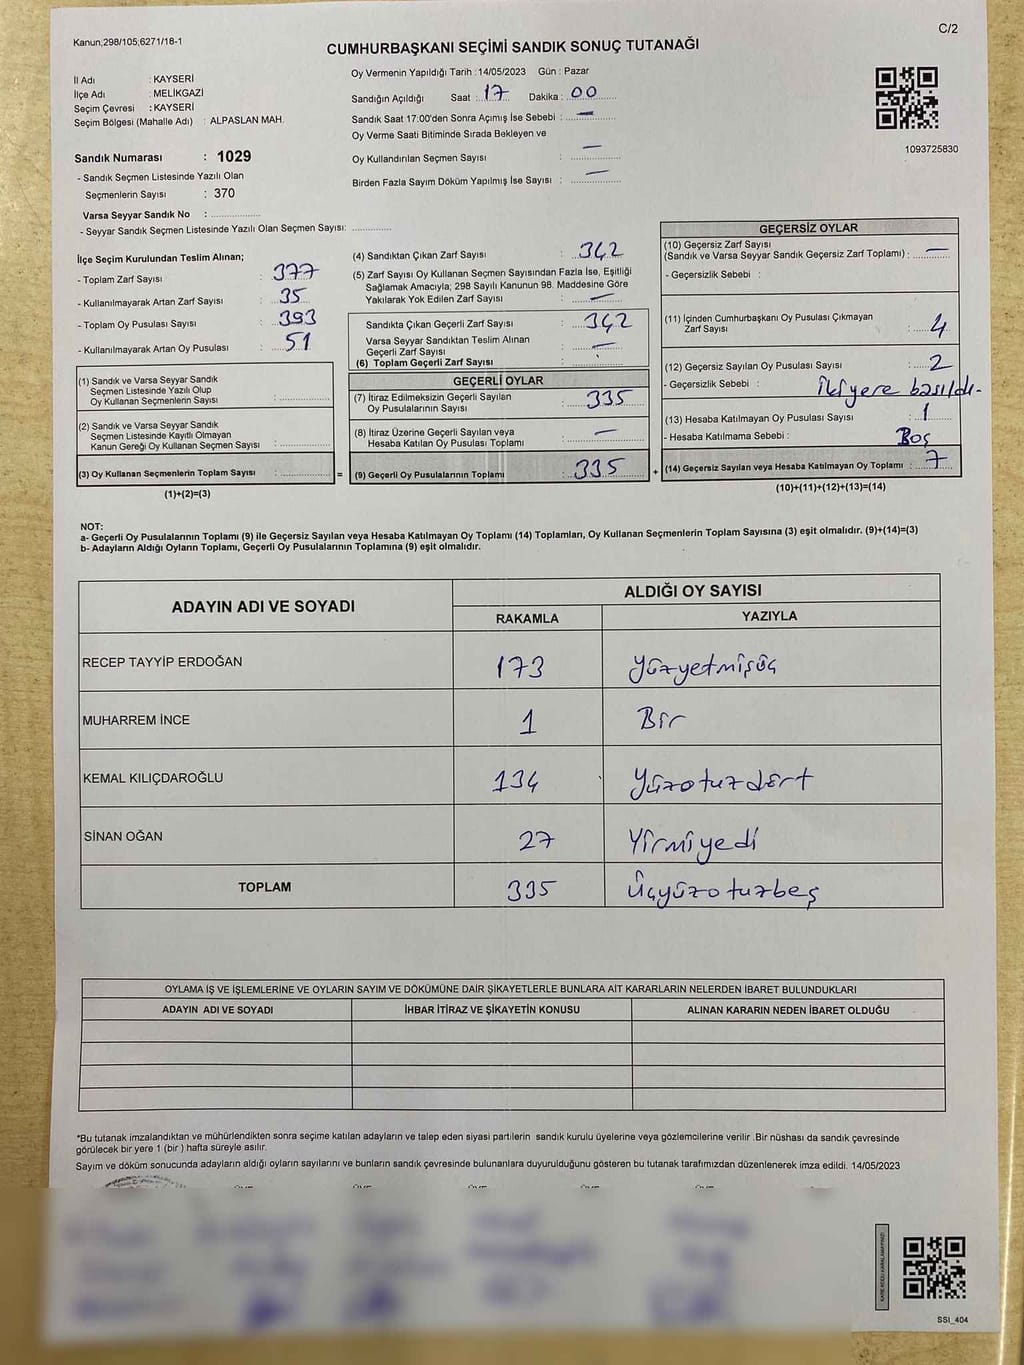 Kanun;298/105;6271/18-1
C/2
CUMHURBAŞKANI SEÇİMİ SANDIK SONUÇ TUTANAĞI
İl Adı : KAYSERİ
İlçe Adı : MELİKGAZİ
Seçim Çevresi : KAYSERİ
Seçim Bölgesi (Mahalle Adı) : ALPASLAN MAH.
Oy Vermenin Yapıldığı Tarih :14/05/2023 Gün : Pazar
Sandığın Açıldığı Saat : 17 Dakika : 00
Sandık Saat 17:00'den Sonra Açımış İse Sebebi : —
Oy Verme Saati Bitiminde Sırada Bekleyen ve
Oy Kullandırılan Seçmen Sayısı : —
Birden Fazla Sayım Döküm Yapılmış İse Sayısı : —
1093725830
Sandık Numarası : 1029
- Sandık Seçmen Listesinde Yazılı Olan
Seçmenlerin Sayısı : 370
Varsa Seyyar Sandık No : ..................
- Seyyar Sandık Seçmen Listesinde Yazılı Olan Seçmen Sayısı: ..............
İlçe Seçim Kurulundan Teslim Alınan;
- Toplam Zarf Sayısı : 377
- Kullanılmayarak Artan Zarf Sayısı : 35
- Toplam Oy Pusulası Sayısı : 393
- Kullanılmayarak Artan Oy Pusulası : 51
(1) Sandık ve Varsa Seyyar Sandık
Seçmen Listesinde Yazılı Olup
Oy Kullanan Seçmenlerin Sayısı : ..............
(2) Sandık ve Varsa Seyyar Sandık
Seçmen Listesinde Kayıtlı Olmayan
Kanun Gereği Oy Kullanan Seçmen Sayısı : ..............
(3) Oy Kullanan Seçmenlerin Toplam Sayısı : .............. =
(1)+(2)=(3)
(4) Sandıktan Çıkan Zarf Sayısı : 342
(5) Zarf Sayısı Oy Kullanan Seçmen Sayısından Fazla İse, Eşitliği
Sağlamak Amacıyla; 298 Sayılı Kanunun 98. Maddesine Göre
Yakılarak Yok Edilen Zarf Sayısı : —
Sandıkta Çıkan Geçerli Zarf Sayısı : 342
Varsa Seyyar Sandıktan Teslim Alınan
Geçerli Zarf Sayısı : —
(6) Toplam Geçerli Zarf Sayısı : ..............
GEÇERLİ OYLAR
(7) İtiraz Edilmeksizin Geçerli Sayılan
Oy Pusulalarının Sayısı : 335
(8) İtiraz Üzerine Geçerli Sayılan veya
Hesaba Katılan Oy Pusulası Toplamı : —
(9) Geçerli Oy Pusulalarının Toplamı : 335 +
GEÇERSİZ OYLAR
(10) Geçersiz Zarf Sayısı
(Sandık ve Varsa Seyyar Sandık Geçersiz Zarf Toplamı) : —
- Geçersizlik Sebebi :
(11) İçinden Cumhurbaşkanı Oy Pusulası Çıkmayan
Zarf Sayısı : 4
(12) Geçersiz Sayılan Oy Pusulası Sayısı : 2
- Geçersizlik Sebebi : İki yere basıldı-
(13) Hesaba Katılmayan Oy Pusulası Sayısı : 1
- Hesaba Katılmama Sebebi : Boş
(14) Geçersiz Sayılan veya Hesaba Katılmayan Oy Toplamı : 7
(10)+(11)+(12)+(13)=(14)
NOT:
a- Geçerli Oy Pusulalarının Toplamı (9) ile Geçersiz Sayılan veya Hesaba Katılmayan Oy Toplamı (14) Toplamları, Oy Kullanan Seçmenlerin Toplam Sayısına (3) eşit olmalıdır. (9)+(14)=(3)
b- Adayların Aldığı Oyların Toplamı, Geçerli Oy Pusulalarının Toplamına (9) eşit olmalıdır.
ADAYIN ADI VE SOYADI
ALDIĞI OY SAYISI
RAKAMLA YAZIYLA
RECEP TAYYİP ERDOĞAN 173 Yüzyetmişüç
MUHARREM İNCE 1 Bir
KEMAL KILIÇDAROĞLU 134 Yüzotuzdört
SİNAN OĞAN 27 Yirmiyedi
TOPLAM 335 Üçyüzotuzbeş
OYLAMA İŞ VE İŞLEMLERİNE VE OYLARIN SAYIM VE DÖKÜMÜNE DAİR ŞİKAYETLERLE BUNLARA AİT KARARLARIN NELERDEN İBARET BULUNDUKLARI
ADAYIN ADI VE SOYADI İHBAR İTİRAZ VE ŞİKAYETİN KONUSU ALINAN KARARIN NEDEN İBARET OLDUĞU
*Bu tutanak imzalandıktan ve mühürlendikten sonra seçime katılan adayların ve talep eden siyasi partilerin sandık kurulu üyelerine veya gözlemcilerine verilir .Bir nüshası da sandık çevresinde
görülecek bir yere 1 (bir ) hafta süreyle asılır.
Sayım ve döküm sonucunda adayların aldığı oyların sayılarını ve bunların sandık çevresinde bulunanlara duyurulduğunu gösteren bu tutanak tarafımızdan düzenlenerek imza edildi. 14/05/2023
SSI_404